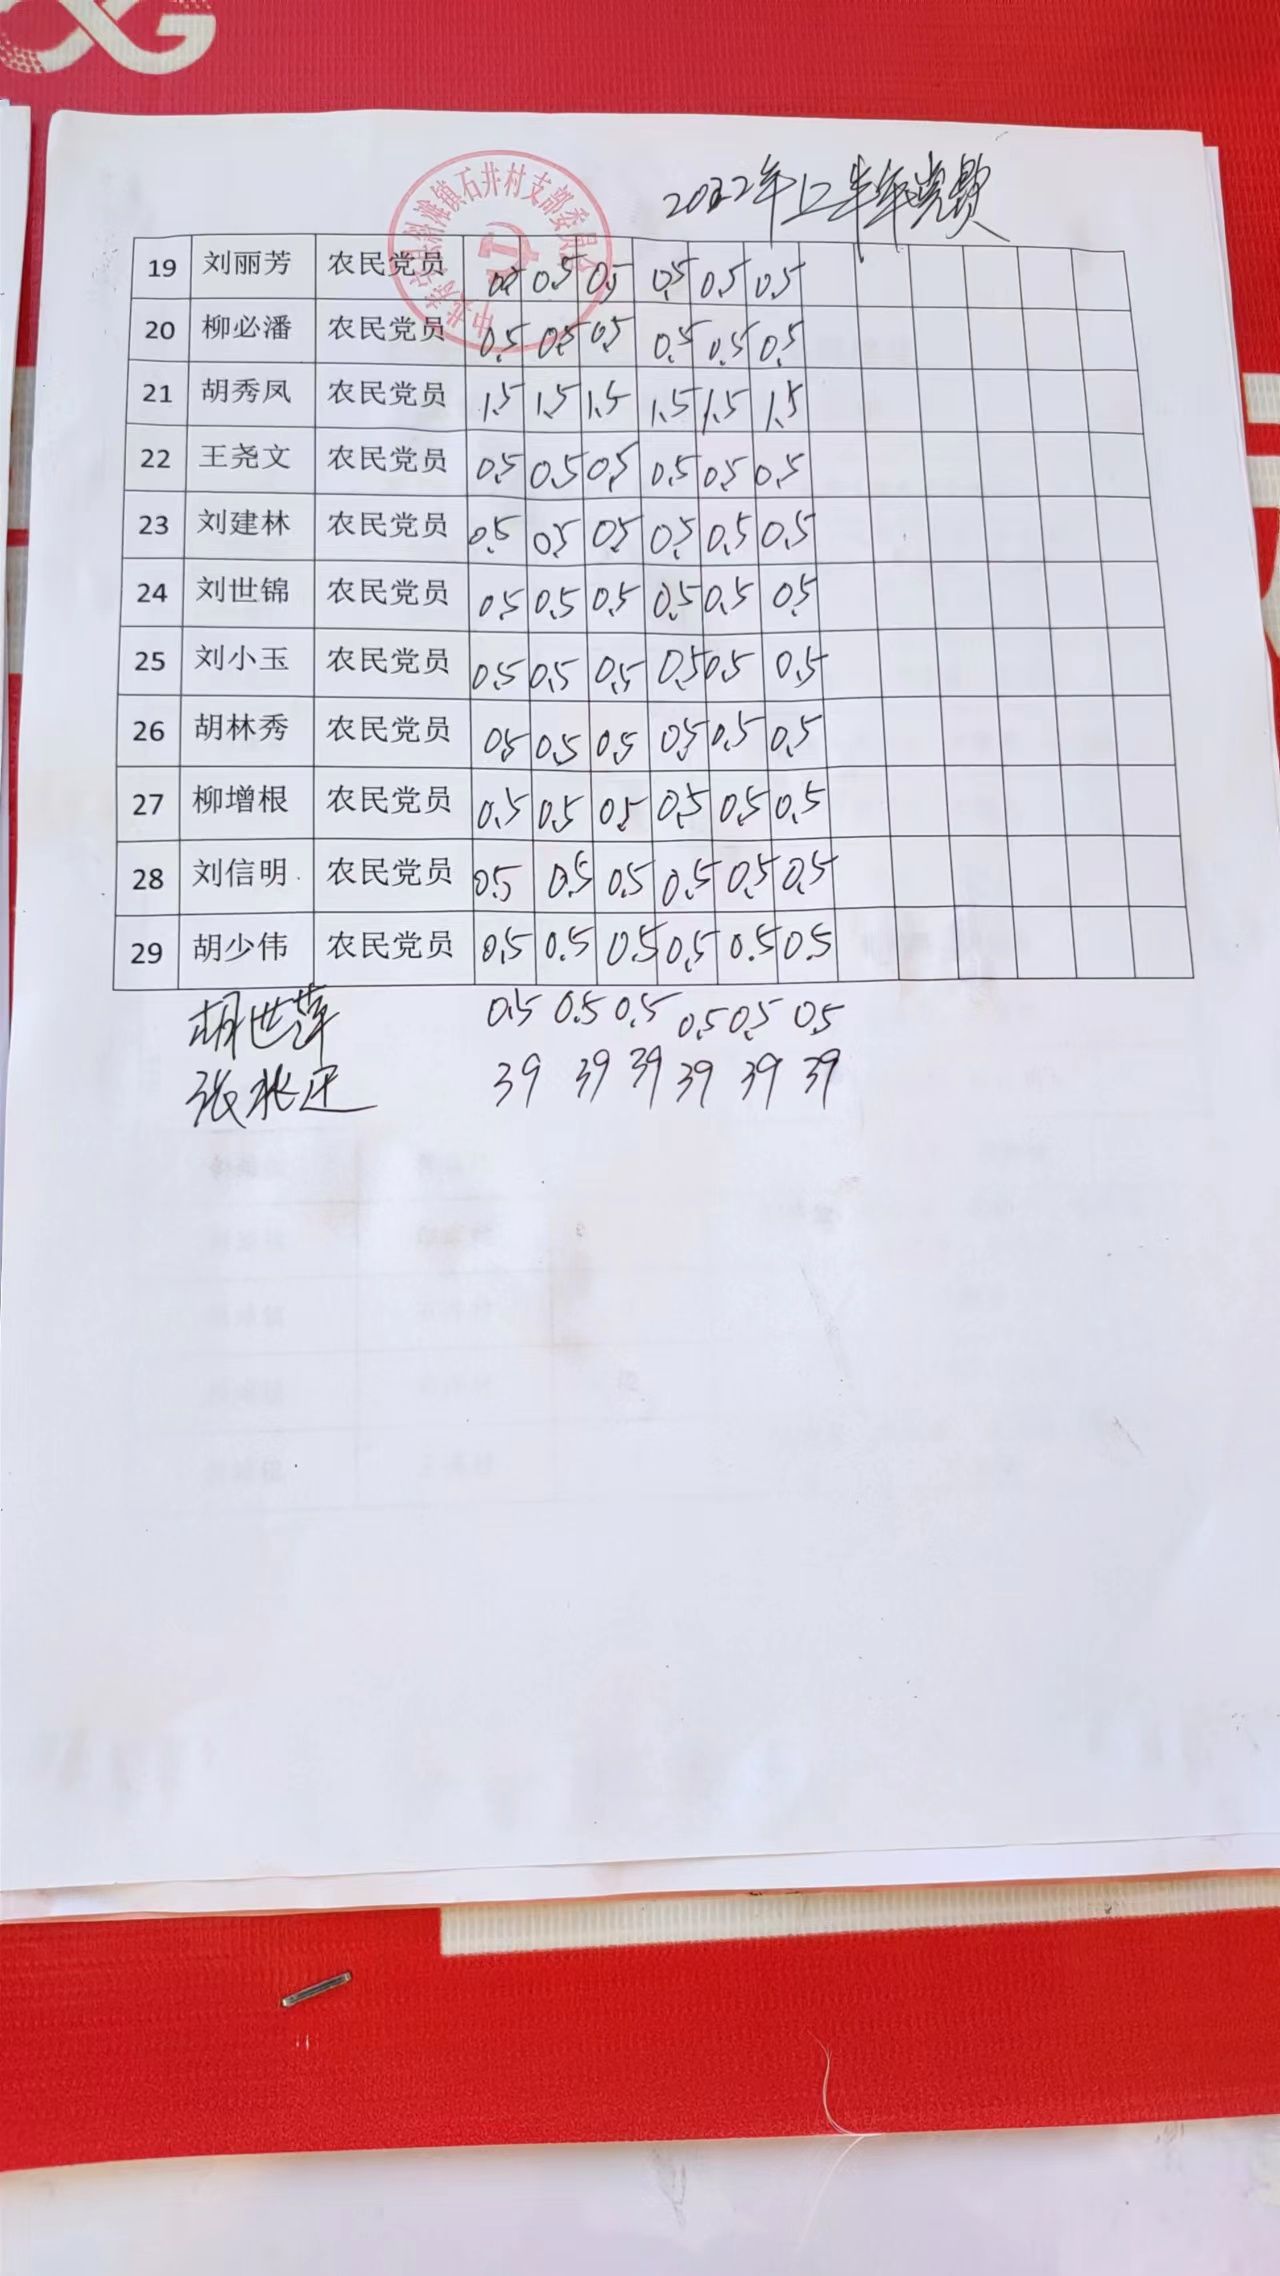 2022年上半年党费
石井村支部委员
19 刘丽芳 农民党员 0.5 0.5 0.5 0.5 0.5 0.5
20 柳必潘 农民党员 0.5 0.5 0.5 0.5 0.5 0.5
21 胡秀凤 农民党员 1.5 1.5 1.5 1.5 1.5 1.5
22 王尧文 农民党员 0.5 0.5 0.5 0.5 0.5 0.5
23 刘建林 农民党员 0.5 0.5 0.5 0.5 0.5 0.5
24 刘世锦 农民党员 0.5 0.5 0.5 0.5 0.5 0.5
25 刘小玉 农民党员 0.5 0.5 0.5 0.5 0.5 0.5
26 胡林秀 农民党员 0.5 0.5 0.5 0.5 0.5 0.5
27 柳增根 农民党员 0.5 0.5 0.5 0.5 0.5 0.5
28 刘信明 农民党员 0.5 0.5 0.5 0.5 0.5 0.5
29 胡少伟 农民党员 0.5 0.5 0.5 0.5 0.5 0.5
胡世萍 0.5 0.5 0.5 0.5 0.5 0.5
39 39 39 39 39 39